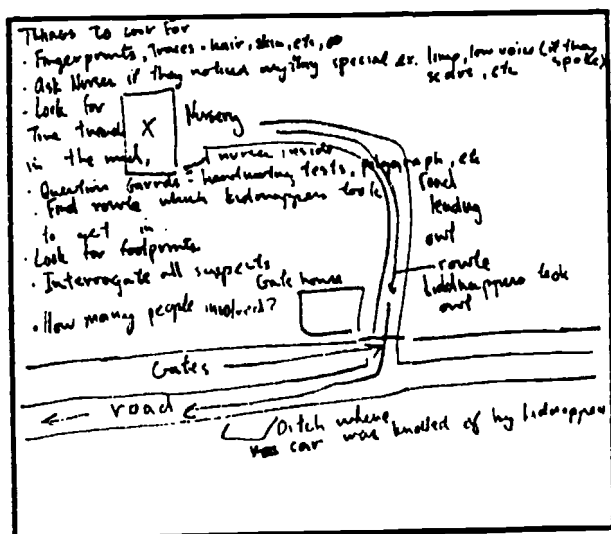 Things to Look For
· Fingerprints, Traces - hair, skin, etc,
· Ask Nurse if they noticed anything special ex. limp, low voice (if they spoke)
scars, etc
· Look for
Tire tread
in the mud,
X
Nursery
nurse inside
· Question Guards - handwriting tests, polygraph, etc
· Find route which kidnappers took
to get in.
· Look for footprints
· Interrogate all suspects
· How many people involved?
road
leading
out
route
kiddnappers took
out
Gate house
Gates
road
Ditch where
car was by kidnappers